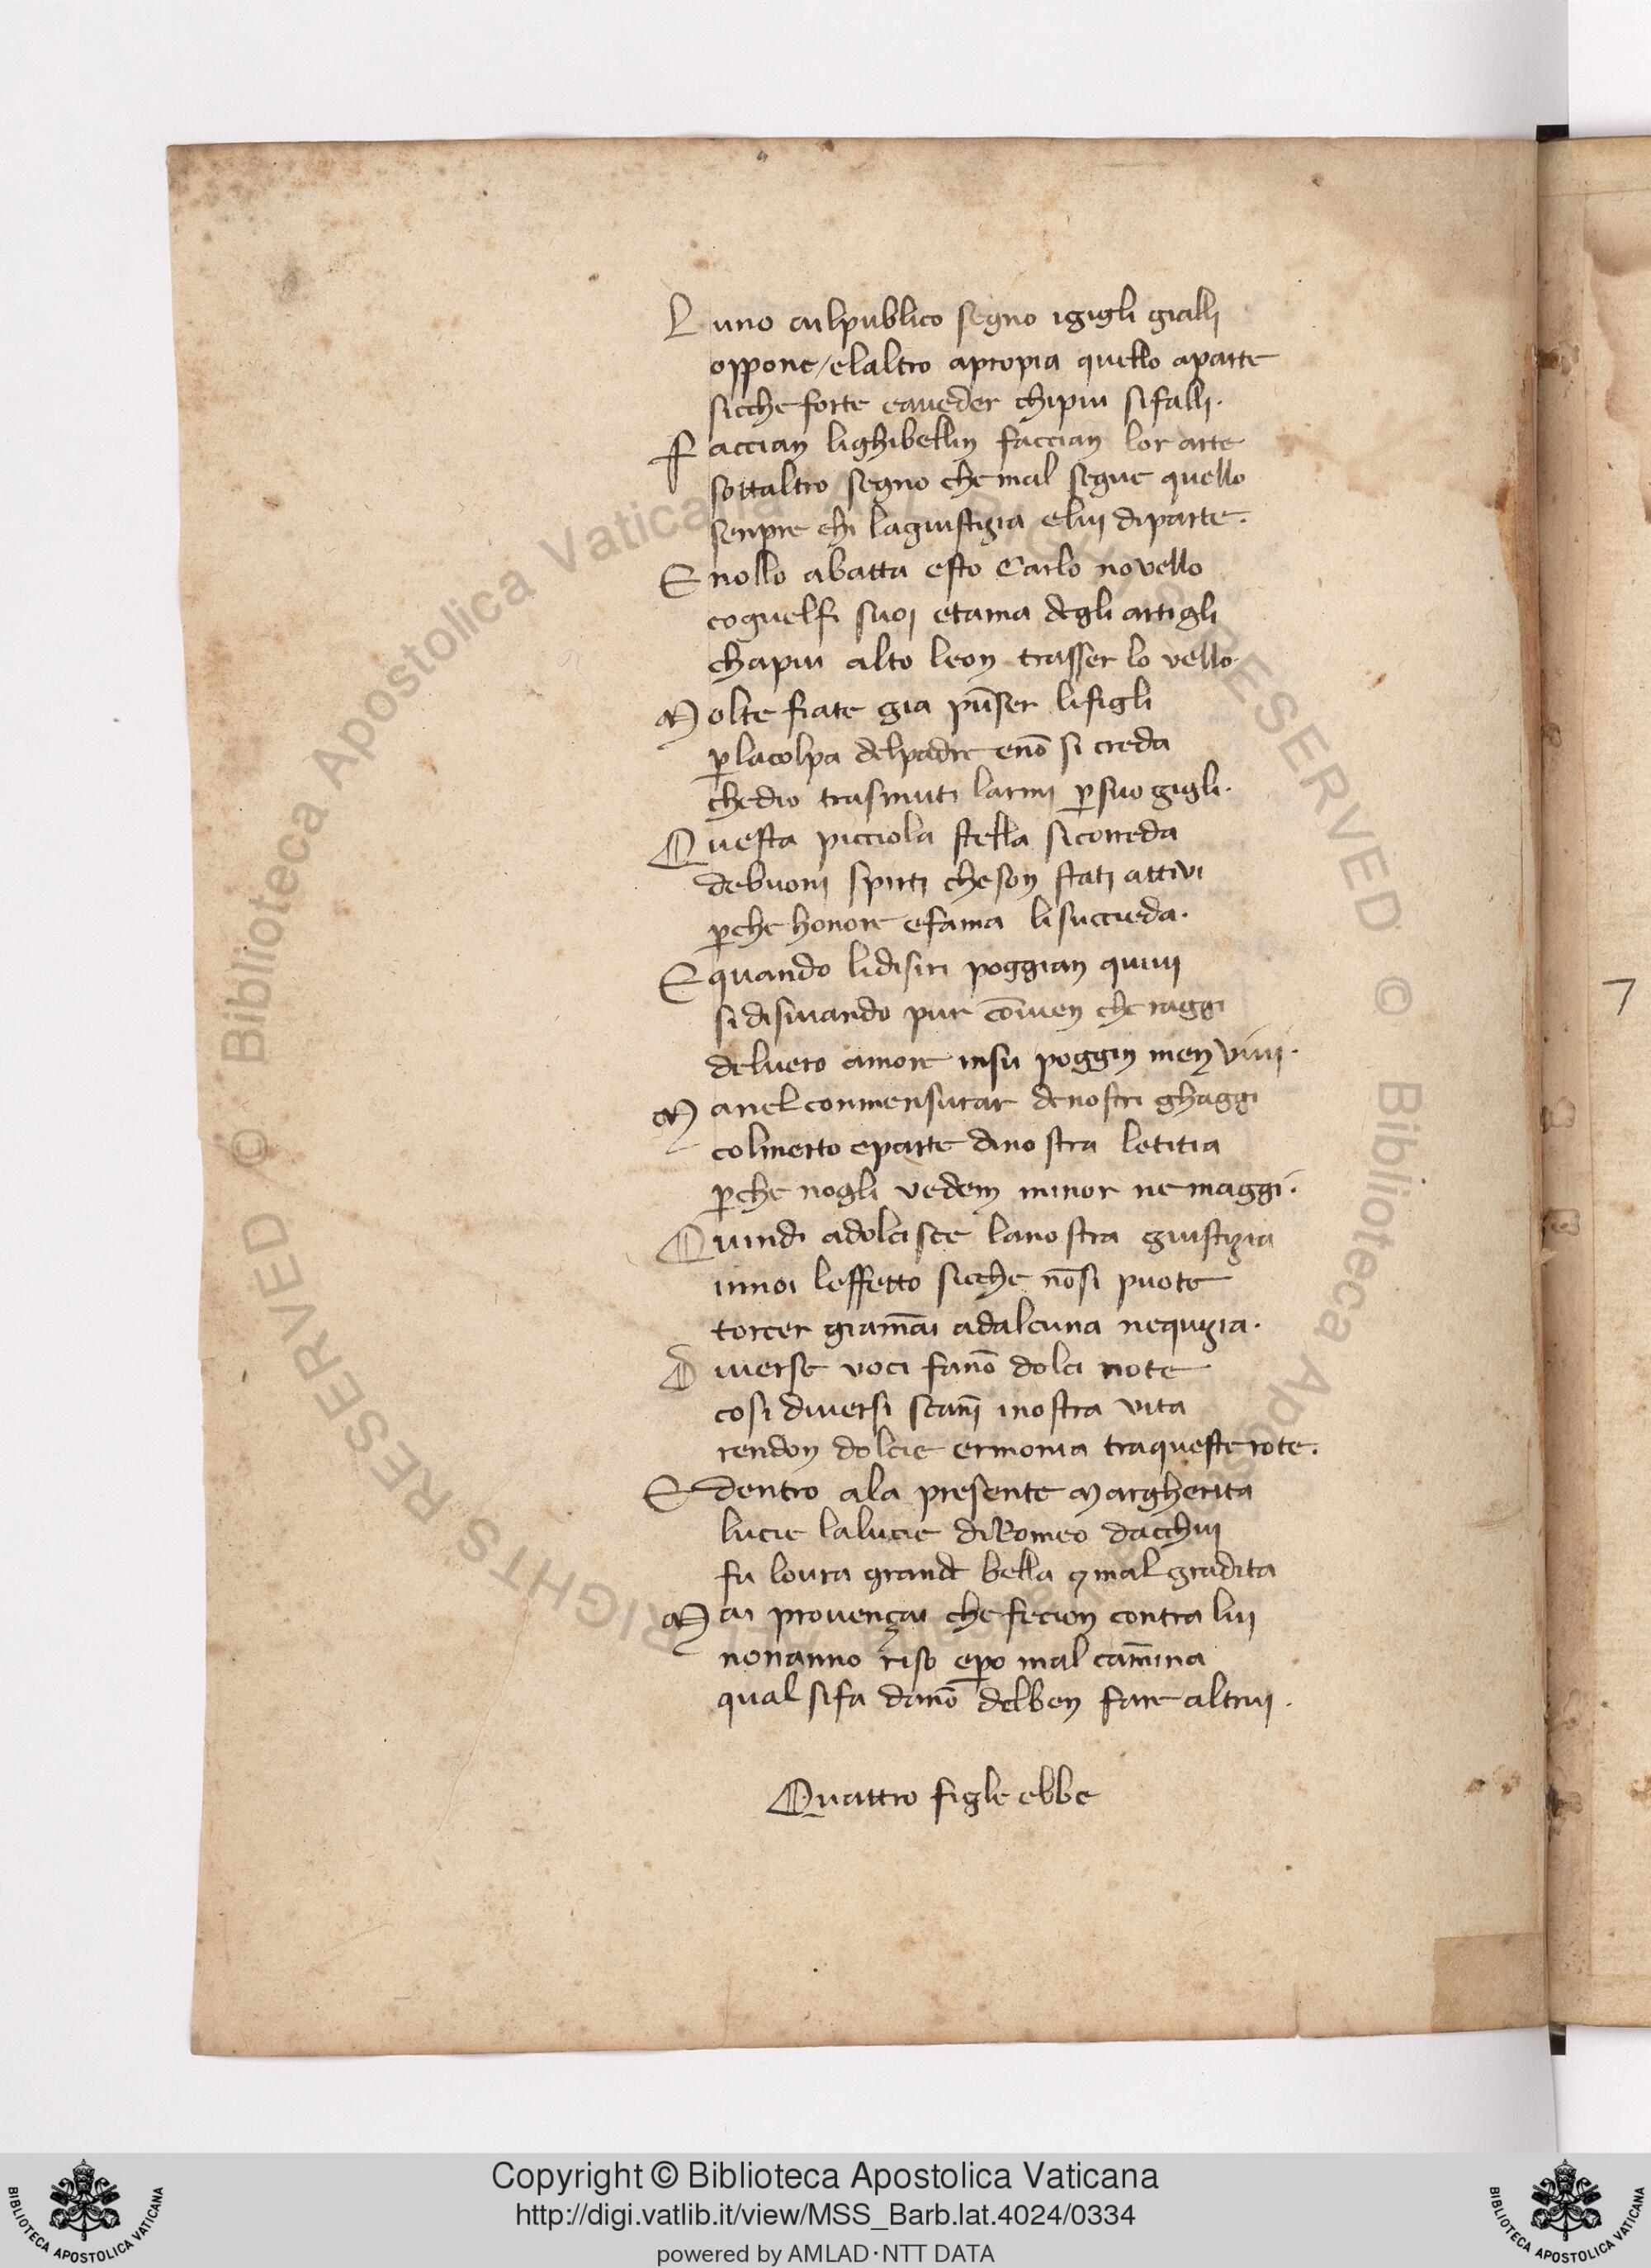 Luno alpublico segno igigli gialli
oppone/elaltro apropia quello aparte
sicche forte eaveder chipiu sifalli.
Faccian lighibellin faccian lor arte
sottaltro segno che mal segue quello
senpre chi lagiustizia elui diparte.
E nollo abatta esto Carlo novello
coguelfi suoi etama degli artigli
chapiu alto leon trasser lo vello
Molte fiate gia pūser lifigli
ꝑlacolpa delpadre enō si creda
chedio trasmuti larmi ꝑsuo gigli.
Questa picciola stella sicorreda
debuoni spirti cheson stati attivi
ꝑche honore efama lisuccieda.
Equando lidisiri poggian quivi
si disviando pur cōvien che raggi
delvero amore insu poggin men vivi.
Manel conmensurar denostri ghaggi
colmerto eparte dinostra letitia
ꝑche nogli vedem minor ne maggi.
Quindi adolcisce lanostra giustizia
innoi leffetto sicche nōsi puote
torcer giamāi adalcuna nequizia.
Diverse voci fanō dolci note
cosi diversi scanī inostra vita
rendon dolcie ermonia traqueste rote.
E dentro ala presente Margherita
lucie lalucie diRomeo dacchui
fu lovra grande bella ⁊ mal gradita
Mai provençai che fecion contra lui
nonanno riso eꝑo mal cam̄ina
qual sifa danō delben fare altrui.
Quattro figle ebbe
7
© Biblioteca Apostolica Vaticana ALL RIGHTS RESERVED © Biblioteca Apostolica Vaticana ALL RIGHTS RESERVED
Copyright © Biblioteca Apostolica Vaticana
http://digi.vatlib.it/view/MSS_Barb.lat.4024/0334
powered by AMLAD·NTT DATA
BIBLIOTECA APOSTOLICA VATICANA
BIBLIOTECA APOSTOLICA VATICANA